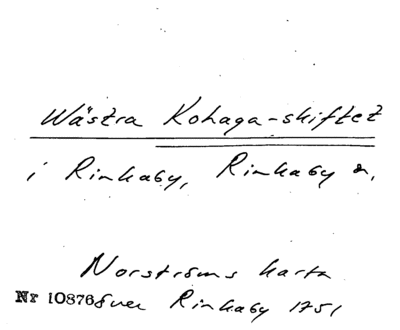 Wästra Kohaga-skiftet
i Rinkaby, Rinkaby s.
Norströms karta
Nr 10876 över Rinkaby 1751